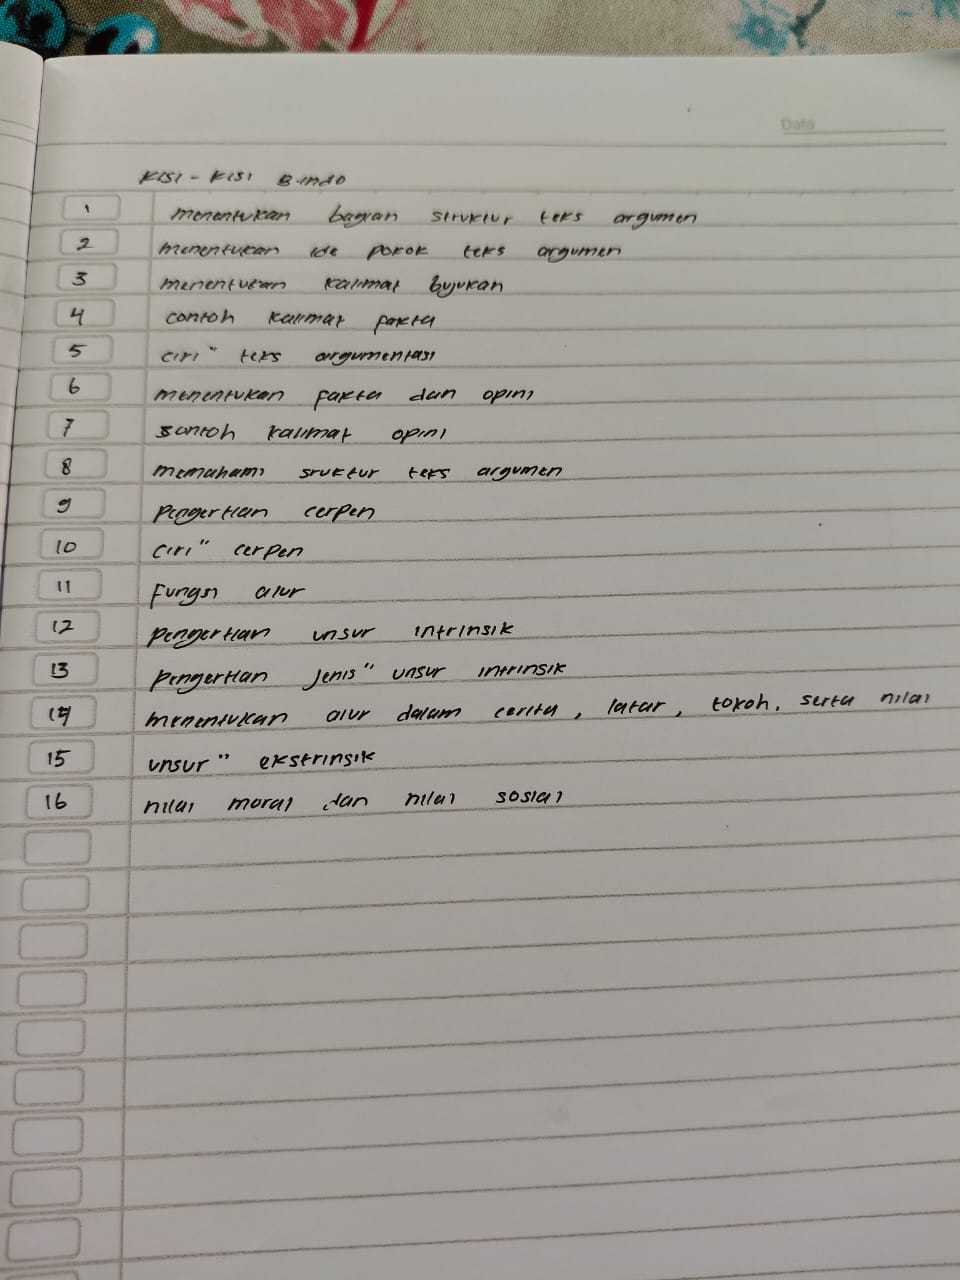 Date
KISI - KISI B.INDO
1 menentukan bagian struktur teks argumen
2 menentukan ide pokok teks argumen
3 menentukan kalimat bujukan
4 contoh kalimat fakta
5 ciri" teks argumentasi
6 menentukan fakta dan opini
7 contoh kalimat opini
8 memahami sruktur teks argumen
9 pengertian cerpen
10 ciri" cerpen
11 Fungsi alur
12 pengertian unsur intrinsik
13 pengertian jenis" unsur intrinsik
14 menentukan alur dalam cerita, latar, tokoh, serta nilai
15 unsur" ekstrinsik
16 nilai moral dan nilai sosial